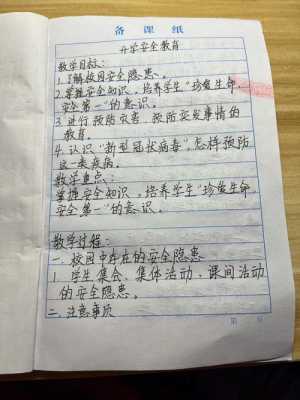 备课纸
开学安全教育
教学目标:
1.了解校园安全隐患。
2.掌握安全知识,培养学生“珍爱生命,
安全第一”的意识。
3.进行预防灾害,预防突发事情的
教育。
4.认识“新型冠状病毒”,怎样预防
这一类疾病。
教学重点:
掌握安全知识,培养学生“珍爱生命,
安全第一”的意识。
教学过程:
一、校园中存在的安全隐患
1.学生集会、集体活动、课间活动
的安全隐患。
二、注意事项
第 页